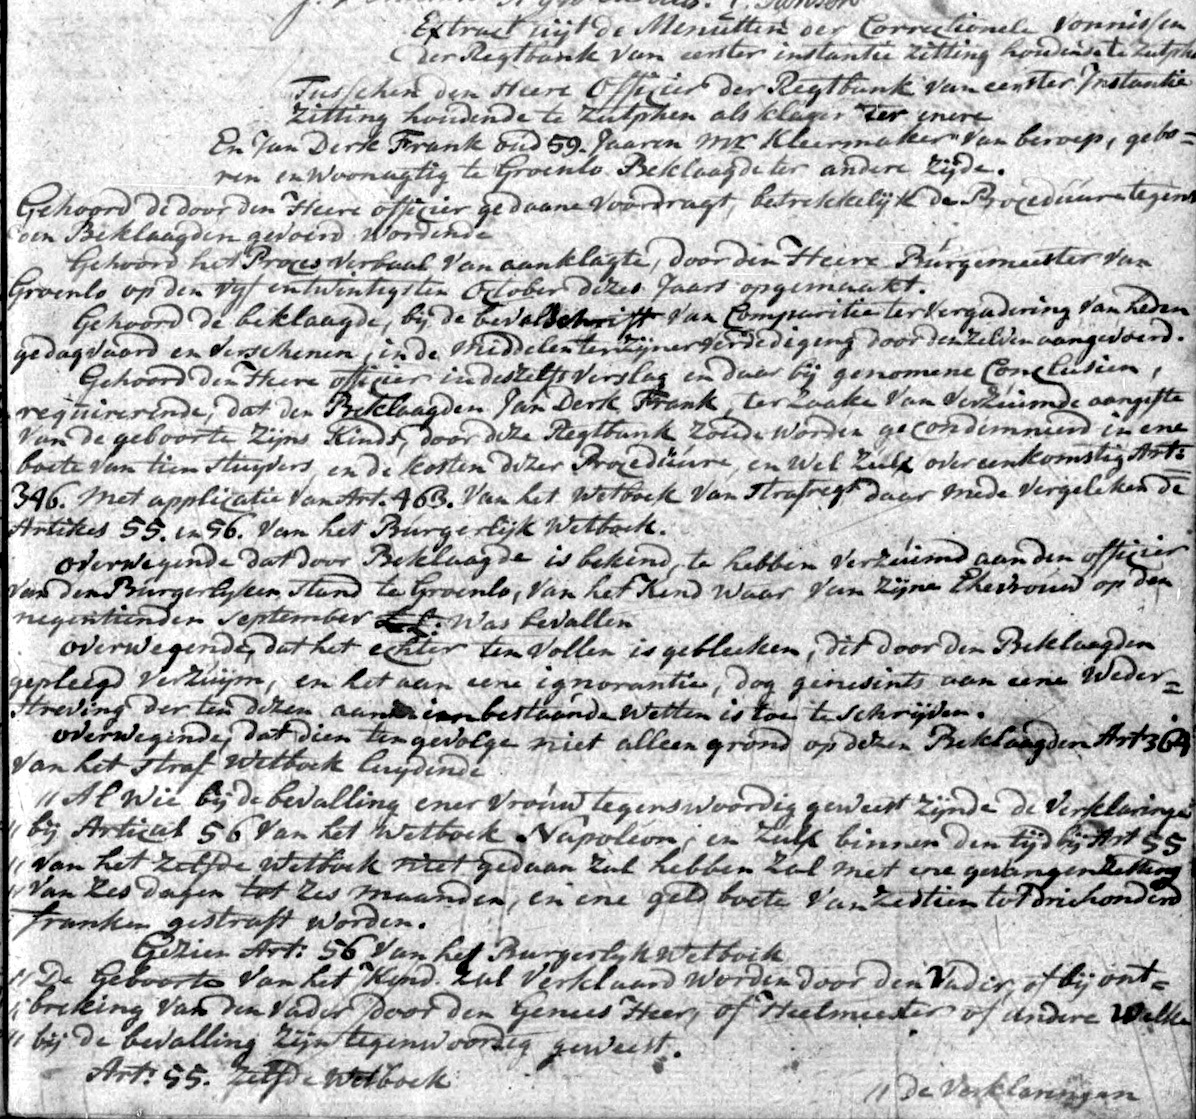 Extract uijt de Menutten der Correctionele Vonnissen
der Regtbank van eerster instantie zitting houdende te Zutphe
Tusschen den Heere Officier der Regtbank van eerster Instantie
Zitting houdende te Zutphen als klager ter enere
En Jan Derk Frank oud 59. Jaaren Mr Kleermaker van beroep, gebo=
ren en woonagtig te Groenlo Beklaagde ter andere Zijde.
Gehoord de door den Heere officier gedaane voordragt, betrekkelijk de Procedüüre tegens
den Beklaagden gevoerd wordende
Gehoord het Proces verbaal van aanklagte, door den Heere Burgemeester van
Groenlo op den vyf entwentigsten October dezes Jaars opgemaakt.
Gehoord de beklaagde, bij de bevelschrift van Comparitie ter vergadering van heden
gedagvaard en verschenen, in de Middelen ter zijner verdediging door denzelven aangevoerd.
Gehoord den Heere officier in deszelfs verslag en daar bij genomene Conclusien,
requirerende, dat den Beklaagden Jan Derk Frank, ter zaake van verzüimde aangifte
van de geboorte zijns Kinds, door deze Regtbank zoude worden gecondemneerd in ene
boete van tien stuyvers, en de kosten dezer Procedüure, en wel zulx overeenkomstig Art:
346. met applicatie van Art. 463. van het wetboek van strafregt daar mede vergeleken de
Artikes 55. en 56. van het Burgerlijk Wetboek.
overwegende dat door Beklaagde is bekend, te hebben verzuimd aan den officier
van den Burgerlyken stand te Groenlo, van het Kend waar van zijne Ehevrouw op den
negentienden september was bevallen
overwegende, dat het echter ten vollen is gebleeken, dit door den Beklaagden
gepleegd verzüijm, en het aan eene ignorantie, dog genesints aan eene Weder=
streving der ten dezen aanzien bestaande wetten is toe te schrijven.
overwegende, dat dien ten gevolge niet alleen grond op dezen Beklaagden Art 364
van het straf Wetboek luydende
" Al wie bij de bevalling ener vrouw tegenswoordig geweest zijnde de verklaringe
" bij Articul 56 van het wetboek Napoleon, en zulx binnen den tijd bij Art 55
" van het zelfde wetboek niet gedaan zal hebben zal met ene gevangenzetting
" van zes dagen tot zes maanden, en ene geld boete van zestien tot driehonderd
franken gestraft worden.
Gezien Art: 56 van het Burgerlyk Wetboek
" De Geboorte van het Kynd zal verklaard worden door den Vader, of bij ont=
" breking van den vader door den Genees Heer, of Heelmeester of andere welke
" bij de bevalling zijn tegenwoordig geweest.
Art: 55. zelfde wetboek
" De verklaringen